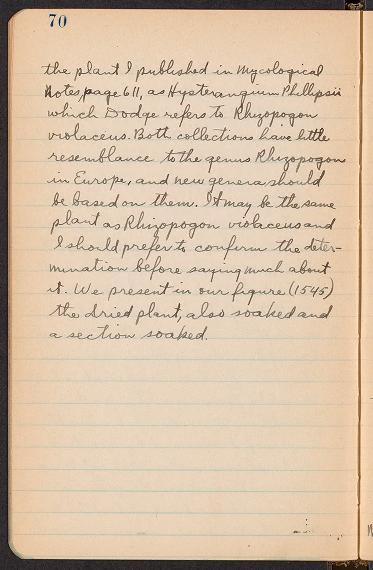 70
the plant I published in Mycological
Notes, page 611, as Hysterangium Phillipsii
which Dodge refers to Rhizopogon
violaceus. Both collections have little
resemblance to the genus Rhizopogon
in Europe, and new genera should
be based on them. It may be the same
plant as Rhizopogon violaceus and
I should prefer to confirm the deter-
mination before saying much about
it. We present in our figure (1545)
the dried plant, also soaked and
a section soaked.